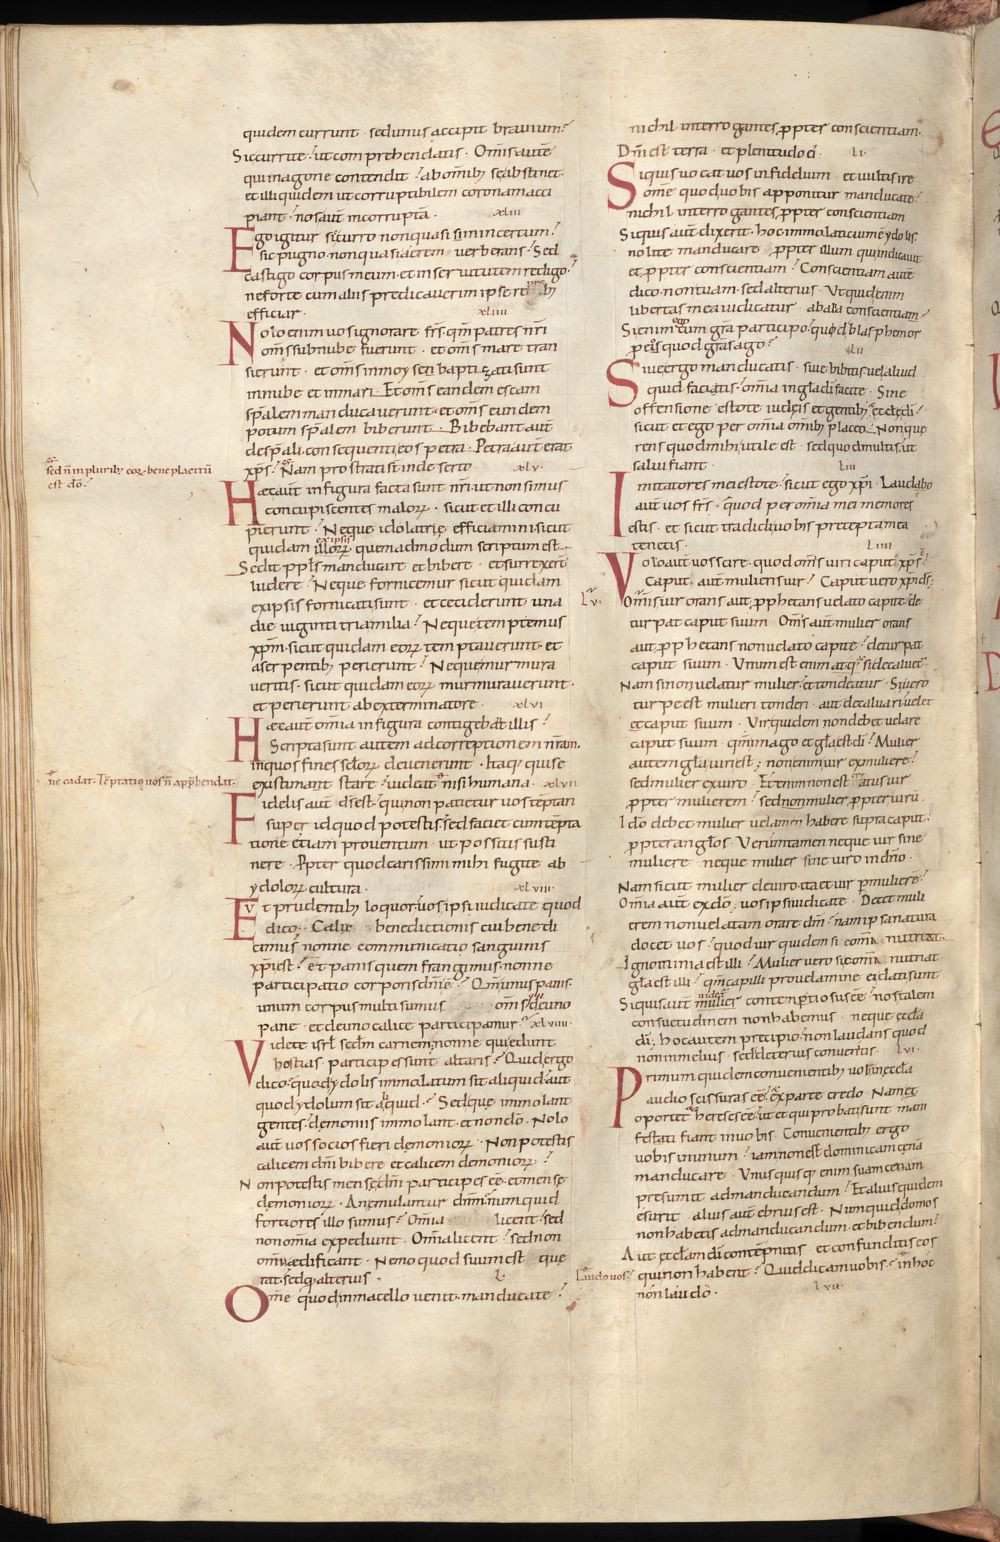 quidem currunt · sed unus accipit bravium ?
Sic currite · ut comprehendatis · Omis autē
qui in agone contendit · ab omnibꝫ se abstinet ·
et illi quidem ut corruptibilem coronam acci
piant · nos aut̄ incorruptā · xliii
Ego igitur sic curro non quasi in incertum ·
sic pugno non quasi aerem verberans · Sed
castigo corpus meum · et in servitutem redigo ·
ne forte cum aliis predicaverim ipse reprobꝫ
efficiar · xliiii
Nolo enim vos ignorare fr̄s · qm̄ patres nr̄i
om̄s sub nube fuerunt · et om̄s mare tran
sierunt · et om̄s in moysen baptizati sunt
in nube et in mari · Et om̄s eandem escam
sp̄alem manducaverunt · et om̄s eundem
potum sp̄alem biberunt · Bibebant aut̄
de sp̄ali consequenti eos petra · Petra aut̄ erat
xp̄s · Nam prostrati st̄ in deserto xlv ·
sed n̄ in pluribꝫ eoꝝ bene placitū
est dō ·
Haec aut̄ in figura facta sunt nr̄i · ut non simus
concupiscentes maloꝝ · sicut et illi concu
pierunt · Neque idolatrię efficiamini sicut
ex ipsis
quidam illoꝝ quemadmodum scriptum est ·
Sedit ppl̄s manducare et bibere · et surrexer̄
ludere · Neque fornicemur sicut quidam
ex ipsis fornicati sunt · et ceciderunt una
die viginti tria milia · Neque temptemus
xpm̄ · sicut quidam eoꝝ temptaverunt · et
a serpentibꝫ perierunt · Neque murmura
veritis · sicut quidam eoꝝ murmuraverunt ·
et perierunt ab exterminatore · xlvi
Haec aut̄ om̄ia in figura contigebat illis ·
Scripta sunt autem ad correptionem nr̄am ·
in quos fines sclōꝝ devenerunt · Itaqꝫ qui se
existimant stare · videat nisi humana · xlvii
ne cadat · Tēptatio vos n̄ app̄hendat ·
Fidelis aut̄ ds̄ est · qui non patietur vos tēptari
super id quod potestis · sed faciet cum tēpta
tione etiam proventum · ut possitis susti
nere · Ꝓpter quod carissimi mihi fugite ab
ydoloꝝ cultura · xlviii ·
Evt prudentibꝫ loquor vos ipsi iudicate quod
dico · Calix benedictionis cui benedi
cimus nonne communicatio sanguinis
xpi est · et panis quem frangimus · nonne
participatio corporis dn̄i ē · Qm̄ unus panis ·
unum corpus multi sumus om̄s qui de uno
pane · et de uno calice participamur · xlviiii ·
Videte isrl̄ scd̄m carnem · nonne qui edunt
hostias participes sunt altaris · Quid ergo
dico · quod ydolis immolatum sit aliquid · aut
quod ydolum sit aliquid · Sed quę immolant
gentes · demoniis immolant · et non dō · Nolo
aut̄ vos socios fieri demonioꝝ · Non potestis
calicem dn̄i bibere et calicem demonioꝝ ·
Non potestis mensę dn̄i participes eē · et mensę
demonioꝝ · An ęmulamur dn̄m · numquid
fortiores illo sumus · Om̄ia licent · sed
non om̄ia expediunt · Om̄ia licent · sed non
om̄ia ędificant · Nemo quod suum est que
rat · sed qđ alterius · L ·
Om̄e quod in macello venit · manducate ·
nichil interrogantes ꝓpter conscientiam ·
Dn̄i est terra · et plenitudo ei · Li ·
Siquis vocat vos infidelium · et vultis ire
om̄e quod vobis apponitur manducate ·
nichil interrogantes ꝓpter conscientiam
Siquis aut̄ dixerit · hoc immolaticium ē ydolis ·
nolite manducare ꝓpter illum qui indicavit
et ꝓpter conscientiam · Conscientiam autē
dico · non tuam · sed alterius · Ut quid enim
libertas mea iudicatur · ab alia conscientiam ·
ego
Si enim cum grā participo · quid blasphemor
ꝓ eo quod grās ago · Lii
Sive ergo manducatis · sive bibitis vel aliud
quid faciatis · om̄ia in glā dī facite · Sine
offensione estote iudęis et gentibꝫ et ęcl̄ę dī ·
sicut et ego per om̄ia omibꝫ placeo · Non quę
rens quod mihi utile est · sed quod multis · ut
salui fiant · Liii
Imitatores mei estote · sicut ego xp̄i · Laudabo
aut̄ vos fr̄s · quod per om̄ia mei memores
estis · et sicut tradidi vobis precepta mea
tenetis · Liiii
Volo aut̄ vos scire · quod om̄is viri caput xp̄s ·
Caput aut̄ mulieris vir · Caput vero xp̄i ds̄ ·
Lv ·
Om̄is vir orans aut ꝓphetans velato capite · de
turpat caput suum · Om̄is aut̄ mulier orans
aut ꝓphetans non velato capite · deturpat
caput suum · Unum est enim atqꝫ si decalvet̄
Nam si non velatur mulier · et tondeatur · Si vero
turpe est mulieri tonderi · aut decalvari · velet
et caput suum · Vir quidem non debet velare
caput suum · qm̄ imago et glā est dī · Mulier
autem glā viri est ; non enim vir ex muliere ·
sed mulier ex viro · Etenim non est creatus vir
ꝓpter mulierem · sed non mulier ꝓpter virū ·
Ido debet mulier velamen habere supra caput ·
ꝓpter angl̄os · Veruntamen neque vir sine
muliere neque mulier sine viro in dn̄o ·
Nam sicut mulier de viro · ita et vir ꝑ mulierē ·
Om̄ia aut̄ ex dō · vos ipsi iudicate · Decet muli
erem non velatam orare dm̄ · nam ipsa natura
docet vos · quod vir quidem si comā nutriat ·
Ignominia est illi · Mulier vero si comā nutriat
glā est illi · qm̄ capilli pro velamine ei dati sunt
Siquis aut̄ mulier contenptiosus eē · nos talem
consuetudinem non habemus · neque ęcl̄a
dī · hoc autem precipio · non laudans quod
non in melius · sed deterius convenitis · Lvi ·
Primum quidem convenientibꝫ vobis in ęcl̄a
audio scissuras eē · ex parte credo · Nam et
oportet hereses eē · ut et qui probati sunt mani
festati fiant in vobis · Convenientibꝫ ergo
vobis in unum · iam non est dominicam cęnā
manducare · Unusquisqꝫ enim suam cenam
presumit ad manducandum · Et alius quidem
esurit alius aut̄ ebrius est · Numquid domos
non habetis ad manducandum · et bibendum ·
Aut ęcl̄am dī contēpnitis et confunditis eos
qui non habent · Quid dicam vobis · in hoc
Laudo vos ·
non laudo · Lvii